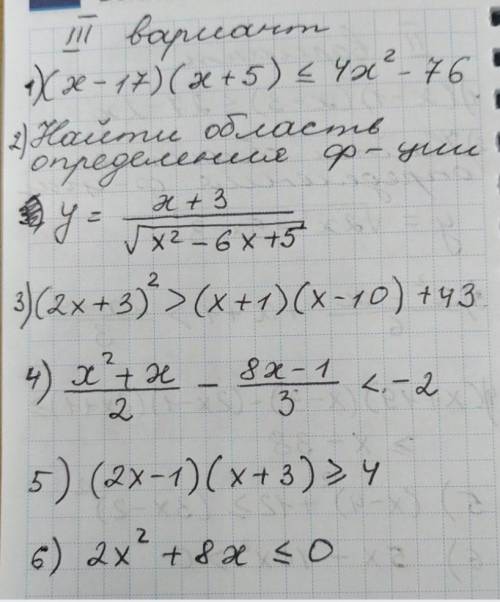 III вариант
1) (x-17)(x+5) ≤ 4x² - 76
2) Найти область
определения ф-ции
y = (x+3)/√(x² - 6x + 5)
3) (2x+3)² > (x+1)(x-10) + 43
4) (x² + x)/2 - (8x - 1)/3 < -2
5) (2x-1)(x+3) ≥ 4
6) 2x² + 8x ≤ 0